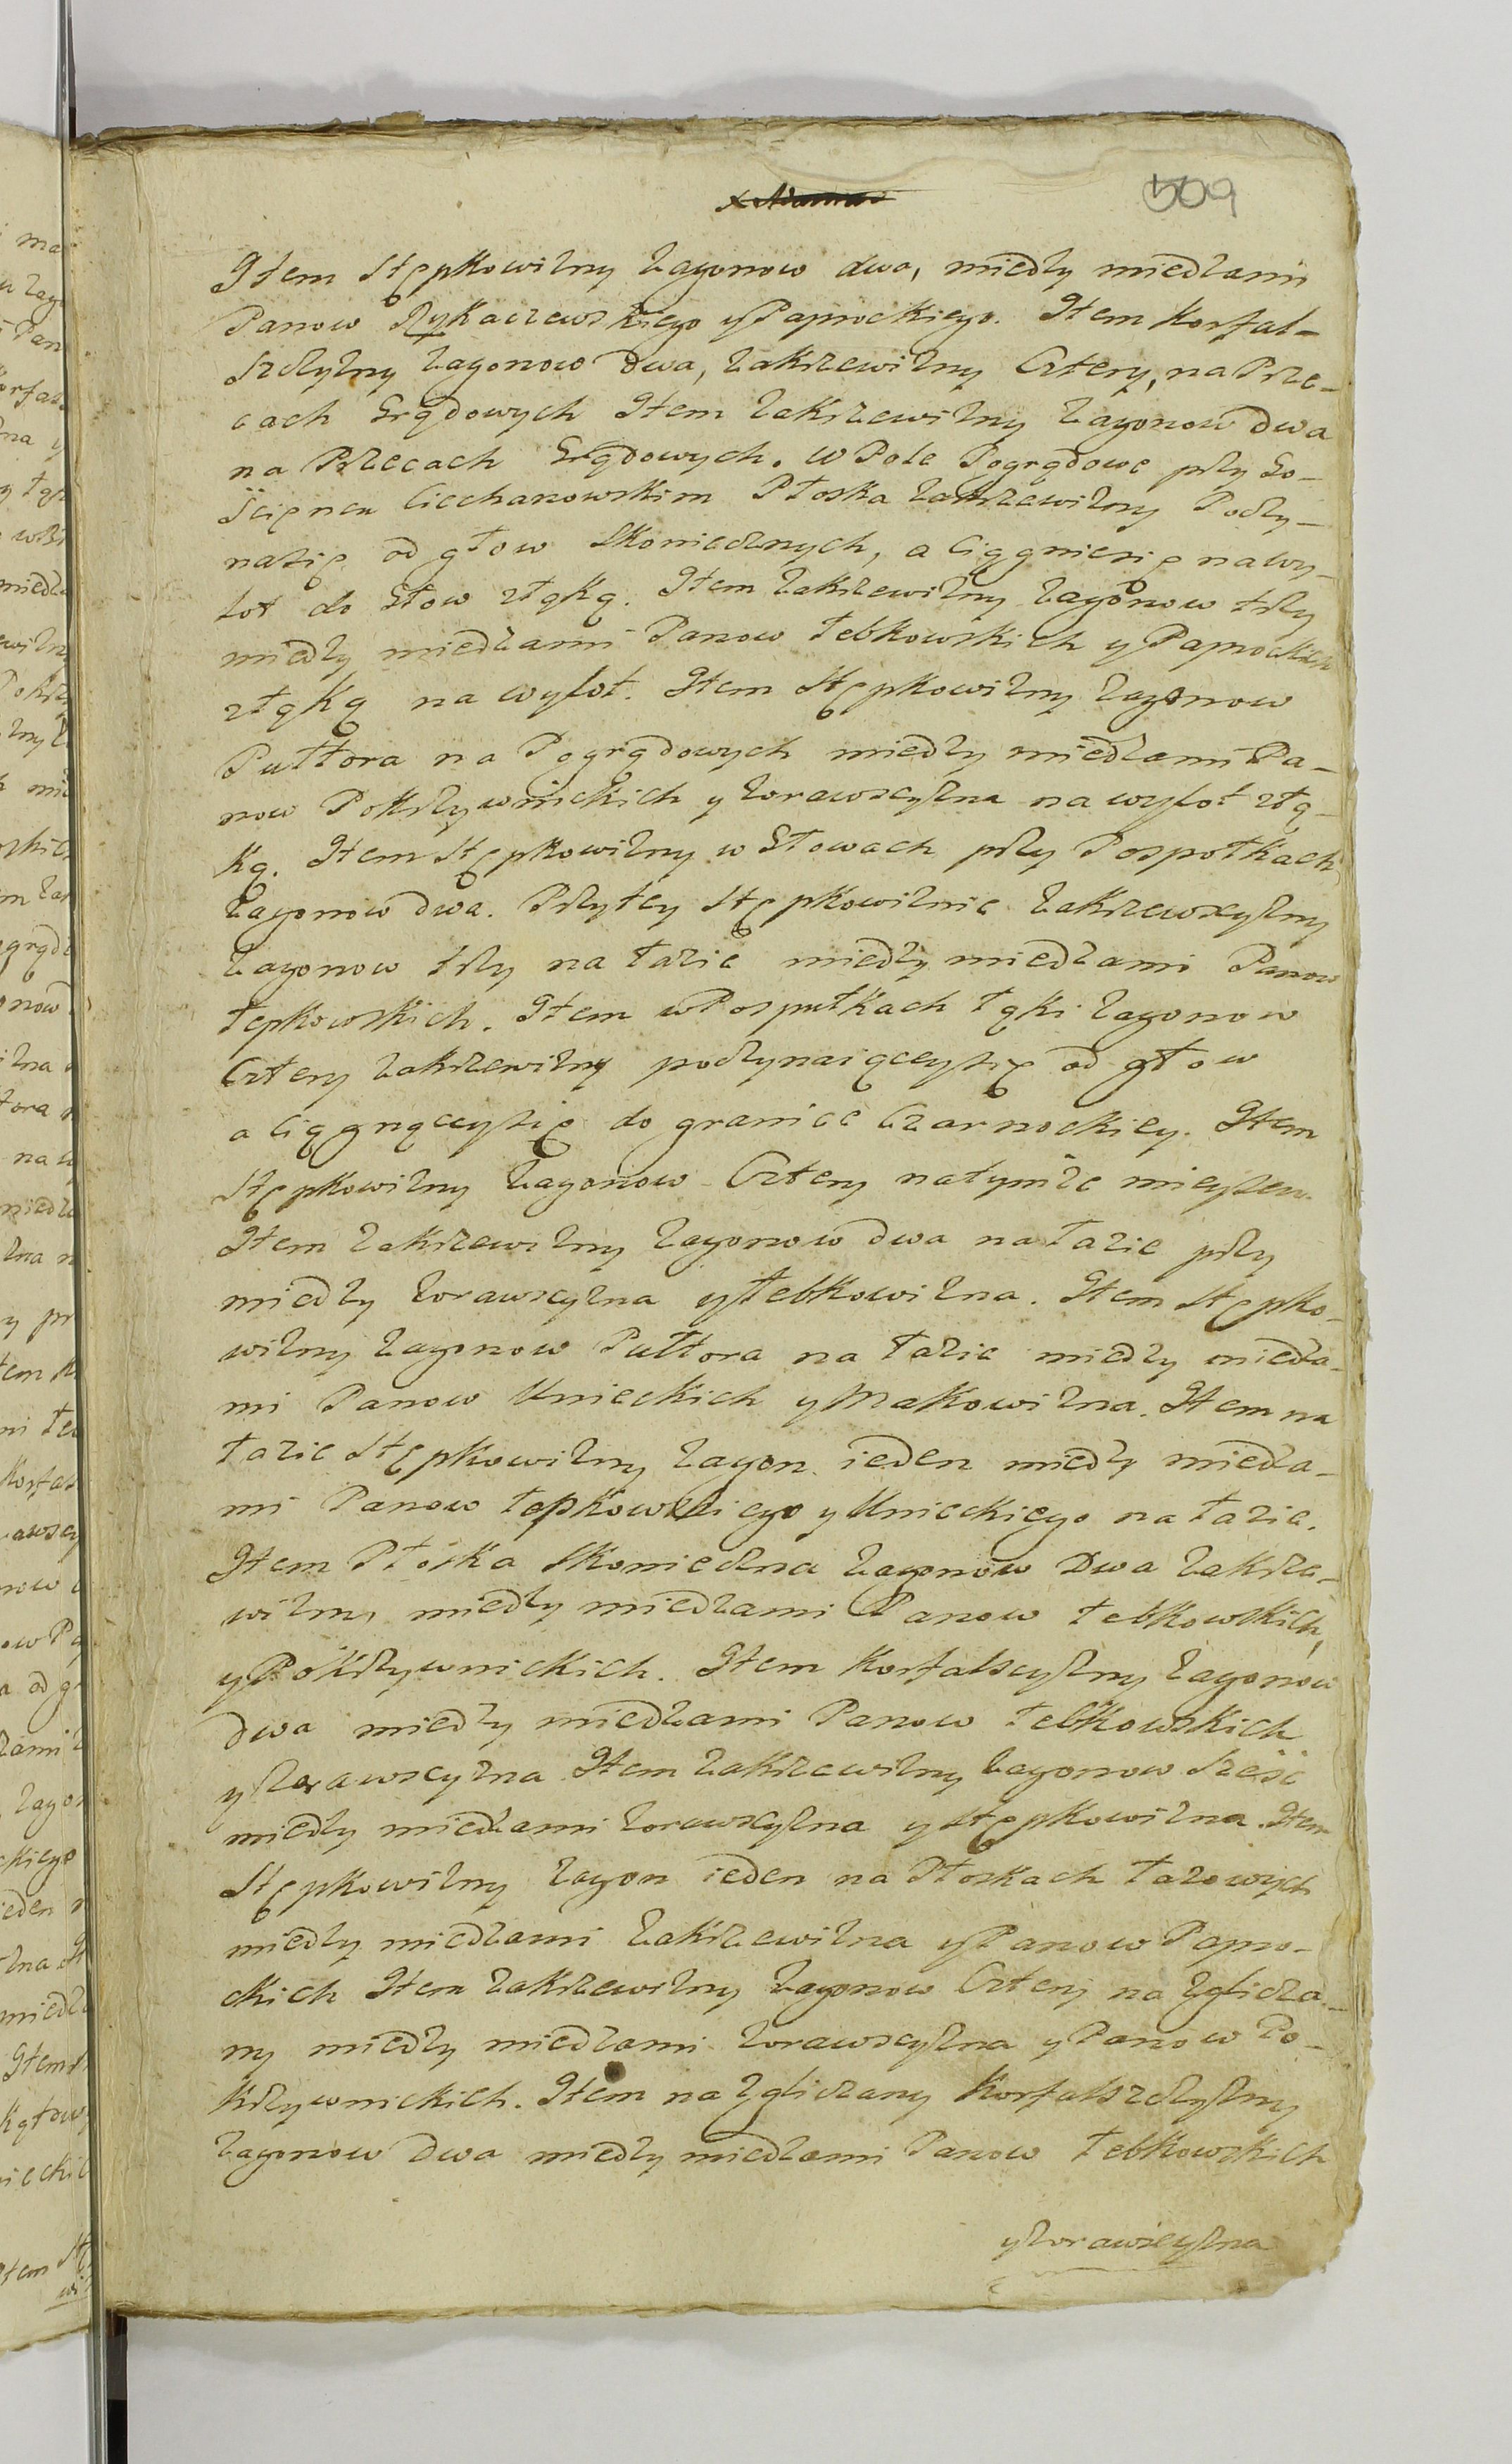 509
Item Stępkowizny Zagonow dwa, miedzy miedzami
Panow Rykaczewskiego y Paprockiego. Item Korfal-
szczyzny Zagonow Dwa, Zakrzewizny Cztery, na Prze-
cach Grądowych Item Zakrzewizny Zagonow dwa
na Przecach Grądowych. W Pole Pogrądowe przy Go-
scięncu Ciechanowskim Płoska Zakrzewizny Poczy-
nasię od głow Skoniecznych, a Ciągniesię nawy-
lot do Głow złąką. Item Zakrzewizny Zagonow trzy
miedzy miedzami Panow Łebkowskich y Paprockich
złąką na wylot. Item Stępkowizny Zagonow
Pułtora na Pogrądowych miedzy miedzami Pa-
now Pokrzywnickich y Zorawscyzna na wylot złą-
ką. Item Stępkowizny w Głowach przy Pospołkach
Zagonow dwa. Przytey Stępkowiznie Zakrzewscyzny
Zagonow trzy na Łazie miedzy miedzami Panow
Łepkowskich. Item w Pospułkach łąki Zagonow
Cztery Zakrzewizny poczynaiąceysię od głow
a Ciągnąceysię do granice Czarnockiey. Item
Stępkowizny Zagonow Cztery natymże mieyscu.
Item Zakrzewizny Zagonow dwa na Łazie przy
miedzy Zorawscyzna y Łebkowizna. Item Stępko-
wizny Zagonow Pułtora na Łazie miedzy miedza-
mi Panow Unieckich y Makowizna. Item na
Łazie Stępkowizny Zagon ieden miedzy miedza-
mi Panow Łepkowskiego y Unieckiego na Łazie.
Item Płoska Skonieczna Zagonow Dwa Zakrze-
wizny miedzy miedzami Panow Łebkowskich,
y Pokrzywnickich. Item Korfalscyzny Zagonow
dwa miedzy miedzami Panow Łebkowskich
y Zorawscyzna Item Zakrzewizny Zagonow Sześć
miedzy miedzami Zorawscyzna y Stępkowizna. Item
Stępkowizny Zagon ieden na Płoskach Łazowych
miedzy miedzami Zakrzewizna y Panow Papro-
ckich Item Zakrzewizny Zagonow Cztery na Zglicza-
ny miedzy miedzami Zorawscyzna y Panow Po-
krzywnickich. Item na Zgliczany Korfalszczyzny
Zagonow Dwa miedzy miedzami Panow Łebkowskich
y Zorawscyzna